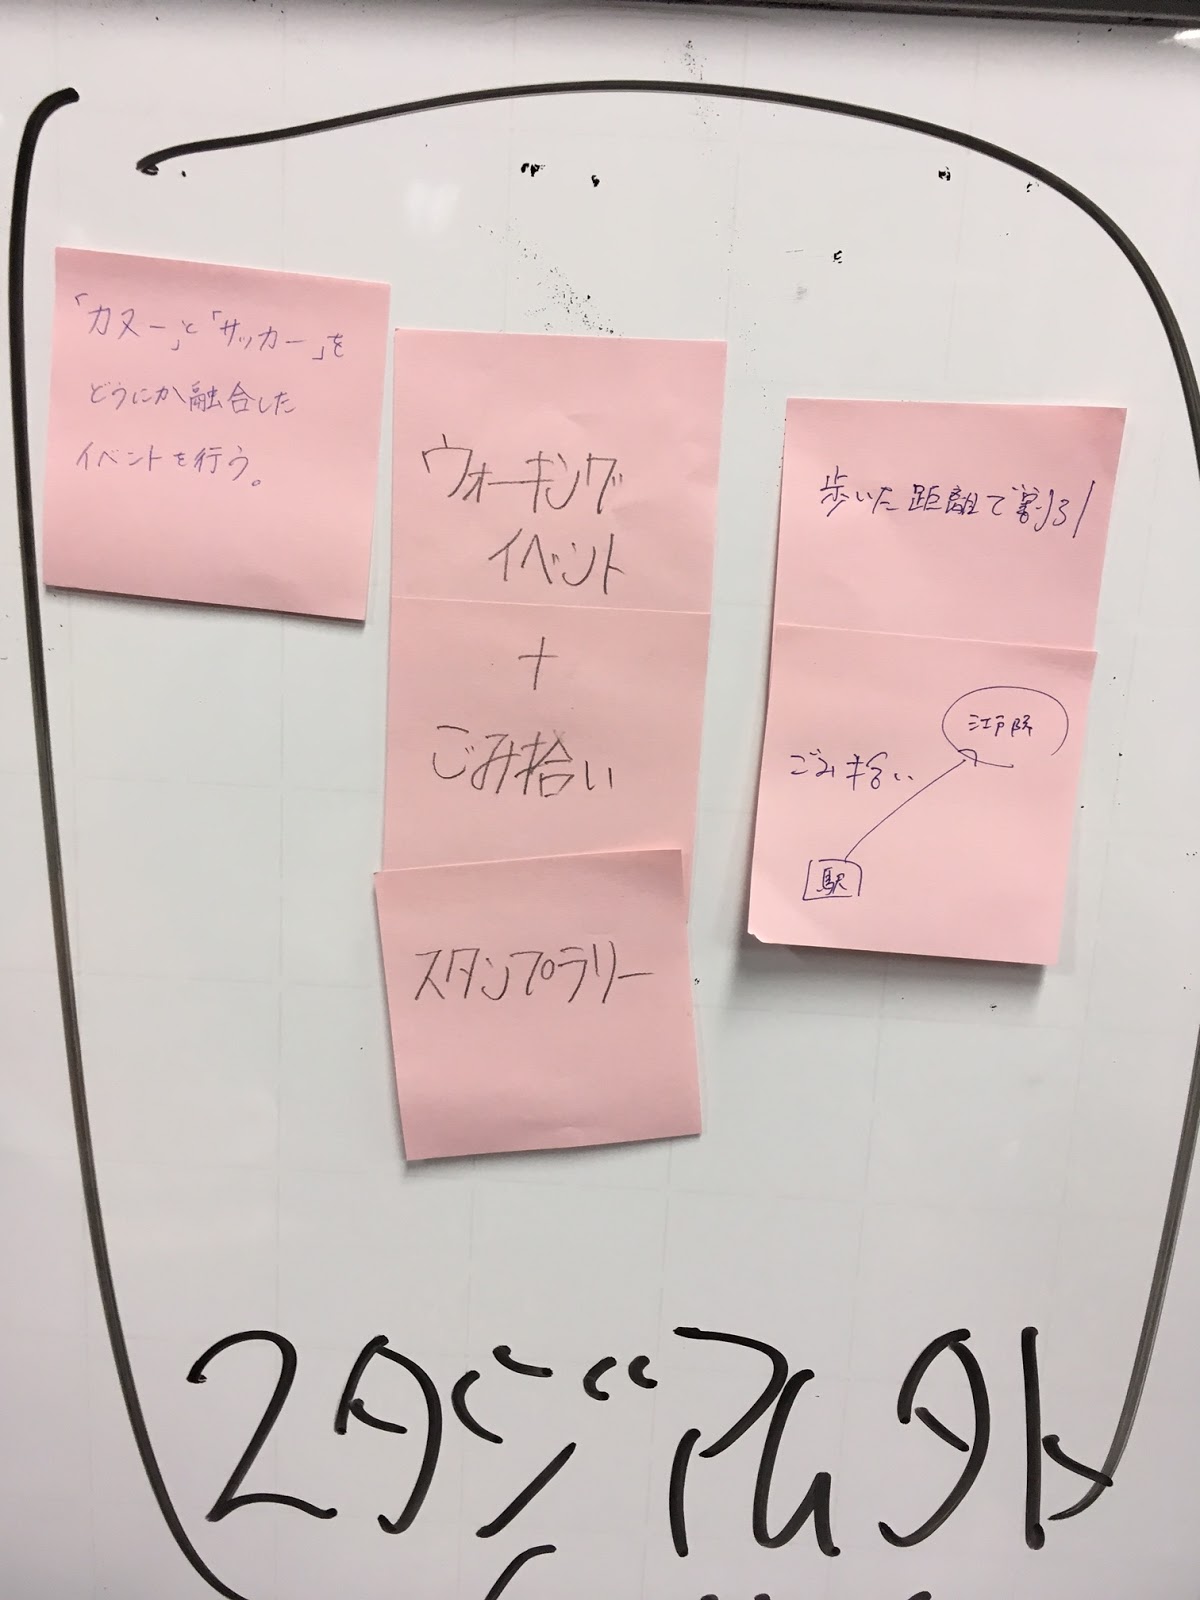 「カヌー」と「サッカー」を
どうにか融合した
イベントを行う。
ウォーキング
イベント
+
ごみ拾い
スタンプラリー
歩いた距離で割引
ごみ拾い
江戸陸
駅
スタジアム外